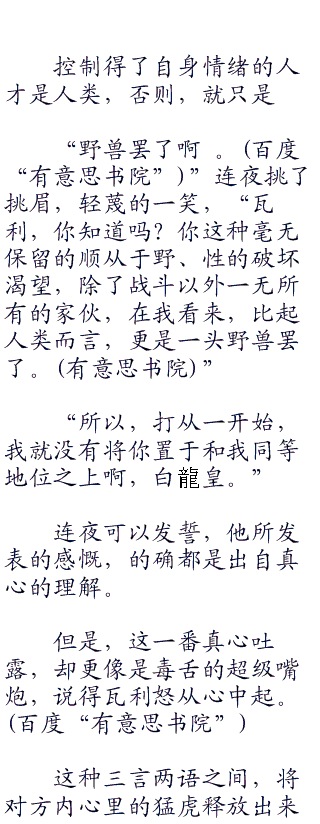 控制得了自身情绪的人
才是人类，否则，就只是
“野兽罢了啊 。(百度
“有意思书院”)”连夜挑了
挑眉，轻蔑的一笑，“瓦
利，你知道吗？你这种毫无
保留的顺从于野、性的破坏
渴望，除了战斗以外一无所
有的家伙，在我看来，比起
人类而言，更是一头野兽罢
了。(有意思书院)”
“所以，打从一开始，
我就没有将你置于和我同等
地位之上啊，白龍皇。”
连夜可以发誓，他所发
表的感慨，的确都是出自真
心的理解。
但是，这一番真心吐
露，却更像是毒舌的超级嘴
炮，说得瓦利怒从心中起。
(百度“有意思书院”)
这种三言两语之间，将
对方内心里的猛虎释放出来